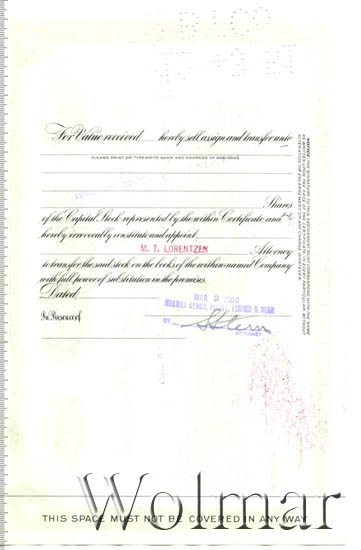 For Value received, hereby sell, assign and transfer unto
PLEASE PRINT OR TYPEWRITE NAME AND ADDRESS OF ASSIGNEE
Shares
of the Capital Stock represented by the within Certificate, and
hereby irrevocably constitute and appoint
M. T. LORENTZEN Attorney
to transfer the said stock on the books of the within-named Company
with full power of substitution in the premises.
Dated,
MAR 1960
In Presence of
MERRILL LYNCH, FENNER & BEAN
BY
ATTORNEY
NOTICE: THE SIGNATURE TO THIS ASSIGNMENT MUST CORRESPOND WITH THE NAME
AS WRITTEN UPON THE FACE OF THE CERTIFICATE IN EVERY PARTICULAR WITHOUT
ALTERATION OR ENLARGEMENT OR ANY CHANGE WHATEVER
Wolmar
THIS SPACE MUST NOT BE COVERED IN ANY WAY